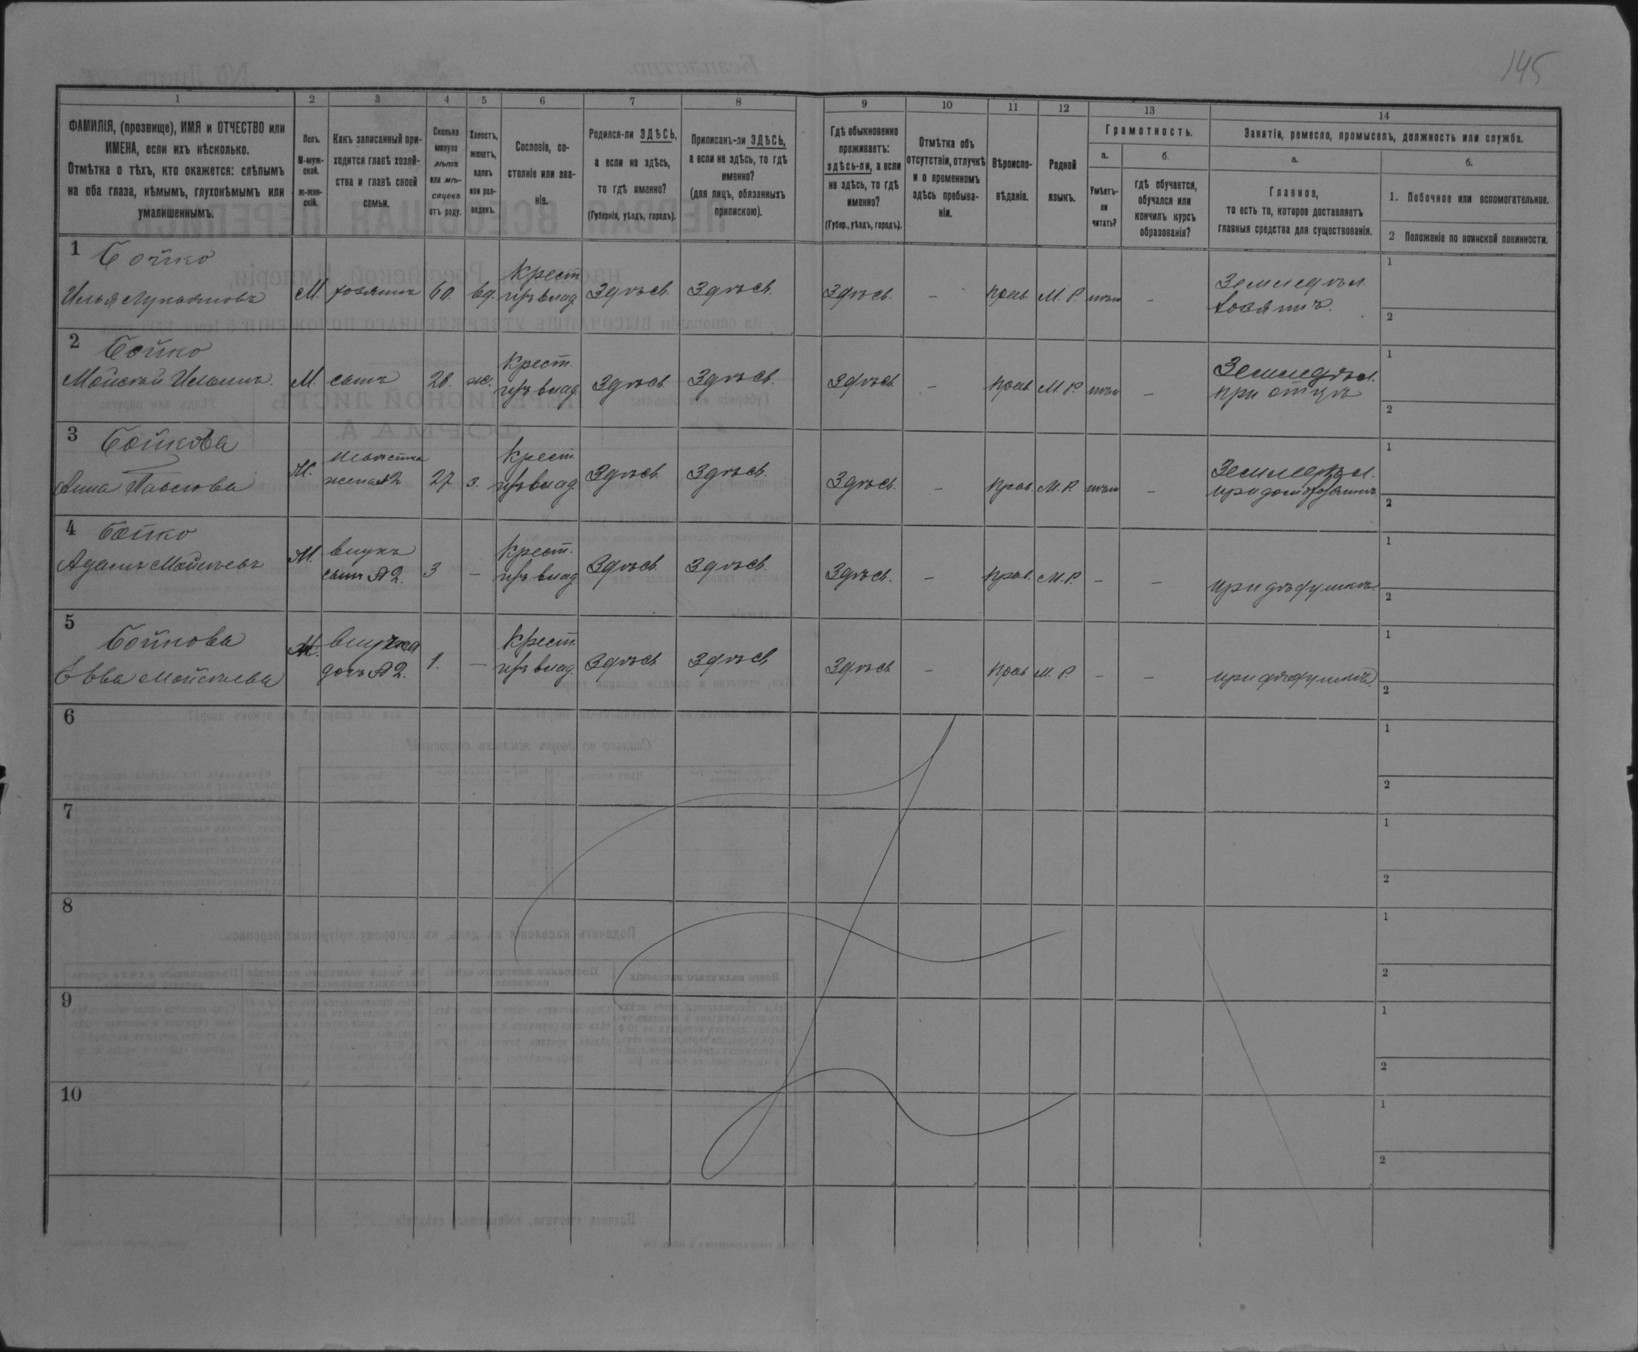 145
1 2 3 4 5 6 7 8 9 10 11 12 13 14
ФАМИЛІЯ, (прозвище), ИМЯ и ОТЧЕСТВО или
ИМЕНА, если ихъ нѣсколько.
Отмѣтка о тѣхъ, кто окажется: слѣпымъ
на оба глаза, нѣмымъ, глухонѣмымъ или
умалишеннымъ.
Полъ.
М-муж-
ской.
ж-жен-
скій.
Какъ записанный при-
ходится главѣ хозяй-
ства и главѣ своей
семьи.
Сколько
минуло
лѣтъ
или мѣ-
сяцевъ
отъ роду.
Холостъ,
женатъ,
вдовъ
или раз-
веденъ.
Сословіе, со-
стояніе или зва-
ніе.
Родился-ли ЗДѢСЬ,
а если не здѣсь,
то гдѣ именно?
(Губернія, уѣздъ, городъ).
Приписанъ-ли ЗДѢСЬ,
а если не здѣсь, то гдѣ
именно?
(для лицъ, обязанныхъ
припискою).
Гдѣ обыкновенно
проживаетъ:
здѣсь-ли, а если
не здѣсь, то гдѣ
именно?
(Губер., уѣздъ, городъ).
Отмѣтка объ
отсутствіи, отлучкѣ
и о временномъ
здѣсь пребыва-
ніи.
Вѣроиспо-
вѣданіе.
Родной
языкъ.
Грамотность.
а.
Умѣетъ-
ли
читать?
б.
гдѣ обучается,
обучался или
кончилъ курсъ
образованія?
Занятіе, ремесло, промыселъ, должность или служба.
а.
Главное,
то есть то, которое доставляетъ
главныя средства для существованія.
б.
1. Побочное или вспомогательное.
2 Положеніе по воинской повинности.
1 Бойко
Илья Лукьяновъ М. хозяинъ 60. вд. Крест. изъ влад. Здѣсь Здѣсь Здѣсь - прав М. Р. - Земледѣл. хозяинъ. 1 2
2 Бойко
Мойсей Ильинъ. М сынъ 28. ж. Крест. изъ влад. Здѣсь Здѣсь. Здѣсь - прав М. Р. - Земледѣл. при отцѣ 1 2
3 Бойкова
Анна Павлова Ж. невѣстка жена №2 27 з. Крест. изъ влад. Здѣсь Здѣсь. Здѣсь - прав. М. Р. - Земледѣл. 1 2
4 Бойко
Адамъ Мойсеевъ М. внукъ сынъ №2. 3 - Крест. изъ влад. Здѣсь Здѣсь Здѣсь. - прав. М. Р. - - при дѣдушкѣ 1 2
5
Бойкова
Евва Мойсеева Ж. внучка дочь №2. 1. - Крест. изъ влад. Здѣсь Здѣсь Здѣсь - прав М. Р. - - при дѣдушкѣ 1 2
6 1 2
7 1 2
8 1 2
9 1 2
10 1 2